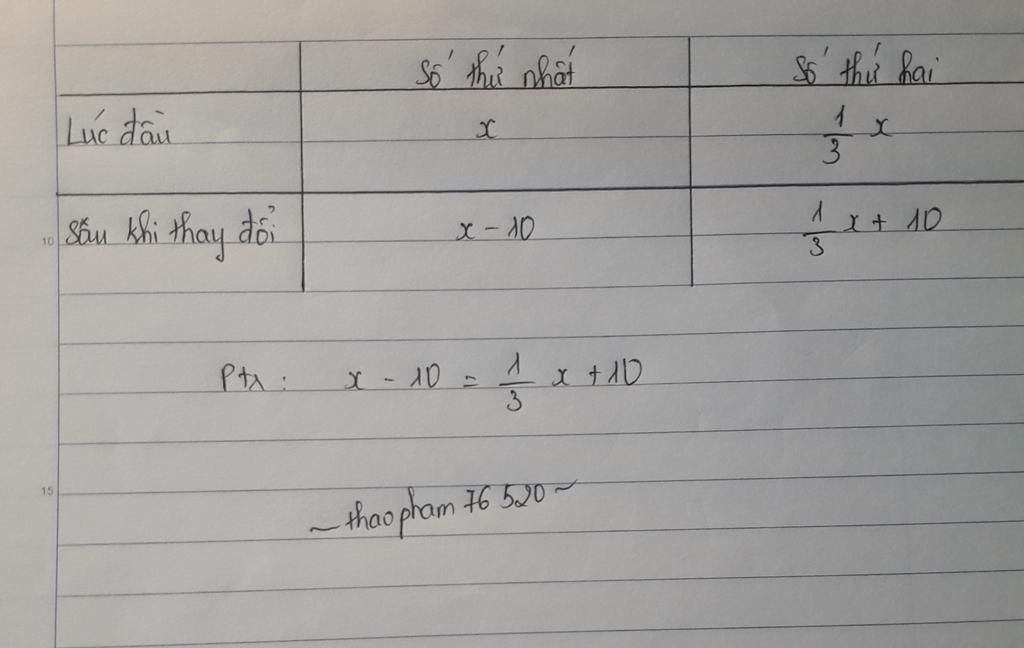 Số thứ nhất Số thứ hai
Lúc đầu x 1/3 x
10 Sau khi thay đổi x - 10 1/3 x + 10
Ptx: x - 10 = 1/3 x + 10
15
~ thaopham 76 520 ~